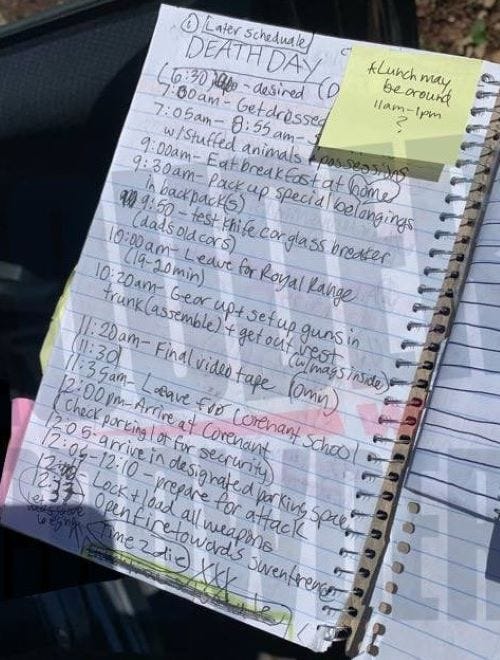 ① Later schedule
DEATH DAY
(6:30) - desired (D
7:00am - Get dressed
7:05am - 8:55am -
w/stuffed animals + possessions
9:00am - Eat breakfast at home
9:30am - Pack up special belongings
in backpack(s)
9:50 - test knife car glass breaker
(dads old cors)
10:00am - Leave for Royal Range
(19-20min)
10:20am - Gear up + set up guns in
trunk (assemble) + get out vest
(w/mags inside)
11:20am - Final video tape (0min)
(11:30)
11:35am - Leave for Covenant School
12:00pm - Arrive at Covenant
(check parking lot for security)
12:05 - arrive in designated parking space
12:06 - 12:10 - prepare for attack
Lock + load all weapons
Open fire towards
Time 2 die XXX
*Lunch may
be around
11am-1pm
?